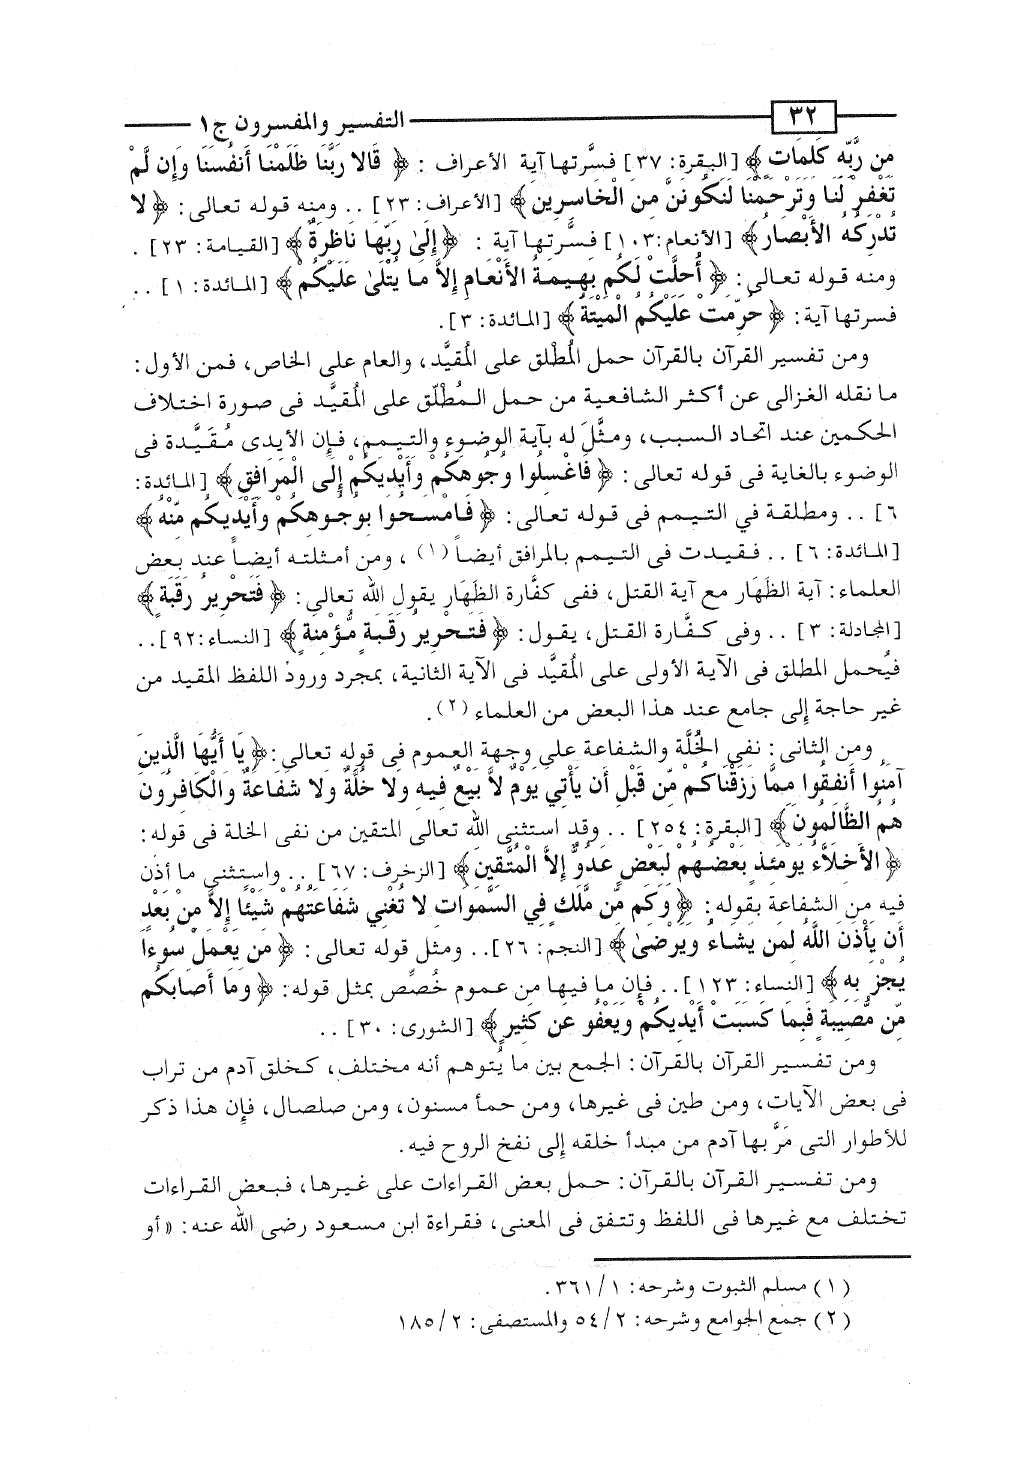 ٣٢
التفسير والمفسرون ج١
مِن رَّبِّهِ كَلِمَاتٍ ﴾ [البقرة: ٣٧] فسَّرتها آية الأعراف : ﴿ قَالا رَبَّنَا ظَلَمْنَا أَنفُسَنَا وَإِن لَّمْ
تَغْفِرْ لَنَا وَتَرْحَمْنَا لَنَكُونَنَّ مِنَ الْخَاسِرِينَ ﴾ [الأعراف: ٢٣] .. ومنه قوله تعالى: ﴿ لا
تُدْرِكُهُ الأَبْصَارُ ﴾ [الأنعام: ١٠٣] فسَّرتها آية : ﴿ إِلَىٰ رَبِّهَا نَاظِرَةٌ ﴾ [القيامة: ٢٣] .
ومنه قوله تعالى: ﴿ أُحِلَّتْ لَكُم بَهِيمَةُ الأَنْعَامِ إِلاَّ مَا يُتْلَىٰ عَلَيْكُمْ ﴾ [المائدة: ١] ..
فسرتها آية: ﴿ حُرِّمَتْ عَلَيْكُمُ الْمَيْتَةُ ﴾ [المائدة: ٣].
ومن تفسير القرآن بالقرآن حمل المُطْلق على المُقيَّد، والعام على الخاص، فمن الأول:
ما نقله الغزالى عن أكثر الشافعية من حمل المُطْلَق على المُقيَّد فى صورة اختلاف
الحكمين عند اتحاد السبب، ومثَّلَ له بآية الوضوء والتيمم، فإن الأيدى مُقَيَّدة فى
الوضوء بالغاية فى قوله تعالى: ﴿ فَاغْسِلُوا وُجُوهَكُمْ وَأَيْدِيَكُمْ إِلَى الْمَرَافِقِ ﴾ [المائدة:
٦] .. ومطلقة في التيمم فى قوله تعالى: ﴿ فَامْسَحُوا بِوُجُوهِكُمْ وَأَيْدِيكُم مِّنْهُ ﴾
[المائدة: ٦] .. فقيدت فى التيمم بالمرافق أيضاً (١) ، ومن أمثلته أيضاً عند بعض
العلماء: آية الظَهَار مع آية القتل، ففى كفَّارة الظَهَار يقول الله تعالى: ﴿ فَتَحْرِيرُ رَقَبَةٍ ﴾
[المجادلة: ٣] .. وفى كفَّارة القتل، يقول: ﴿ فَتَحْرِيرُ رَقَبَةٍ مُّؤْمِنَةٍ ﴾ [النساء: ٩٢]..
فيُحمل المطلق فى الآية الأولى على المُقيَّد فى الآية الثانية، بمجرد ورود اللفظ المقيد من
غير حاجة إلى جامع عند هذا البعض من العلماء (٢).
ومن الثانى: نفى الخُلَّة والشفاعة على وجهة العموم فى قوله تعالى: ﴿ يَا أَيُّهَا الَّذِينَ
آمَنُوا أَنفِقُوا مِمَّا رَزَقْنَاكُم مِّن قَبْلِ أَن يَأْتِيَ يَوْمٌ لاَّ بَيْعٌ فِيهِ وَلا خُلَّةٌ وَلا شَفَاعَةٌ وَالْكَافِرُونَ
هُمُ الظَّالِمُونَ ﴾ [البقرة: ٢٥٤] .. وقد استثنى الله تعالى المتقين من نفى الخلة فى قوله:
﴿ الأَخِلاَّءُ يَوْمَئِذٍ بَعْضُهُمْ لِبَعْضٍ عَدُوٌّ إِلاَّ الْمُتَّقِينَ ﴾ [الزخرف: ٦٧] .. واستثنى ما أذن
فيه من الشفاعة بقوله: ﴿ وَكَم مِّن مَّلَكٍ فِي السَّمَوَاتِ لا تُغْنِي شَفَاعَتُهُمْ شَيْئًا إِلاَّ مِنْ بَعْدِ
أَن يَأْذَنَ اللَّهُ لِمَن يَشَاءُ وَيَرْضَىٰ ﴾ [النجم: ٢٦].. ومثل قوله تعالى: ﴿ مَن يَعْمَلْ سُوءًا
يُجْزَ بِهِ ﴾ [النساء: ١٢٣].. فإن ما فيها من عموم خُصِّص بمثل قوله: ﴿ وَمَا أَصَابَكُم
مِّن مُّصِيبَةٍ فَبِمَا كَسَبَتْ أَيْدِيكُمْ وَيَعْفُو عَن كَثِيرٍ ﴾ [الشورى: ٣٠] ..
ومن تفسير القرآن بالقرآن: الجمع بين ما يُتوهم أنه مختلف، كخلق آدم من تراب
فى بعض الآيات، ومن طين فى غيرها، ومن حمأ مسنون، ومن صلصال، فإن هذا ذكر
للأطوار التى مَرَّ بها آدم من مبدأ خلقه إلى نفخ الروح فيه.
ومن تفسير القرآن بالقرآن: حمل بعض القراءات على غيرها، فبعض القراءات
تختلف مع غيرها فى اللفظ وتتفق فى المعنى، فقراءة ابن مسعود رضى الله عنه: « أو
(١) مسلم الثبوت وشرحه: ١/ ٣٦١.
(٢) جمع الجوامع وشرحه: ٢/ ٥٤ والمستصفى: ٢/ ١٨٥